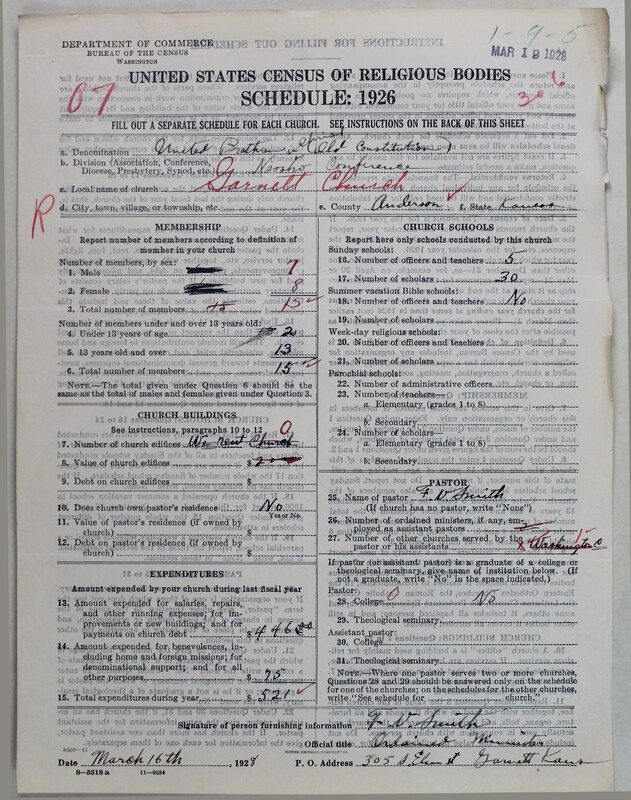 1-9-5
DEPARTMENT OF COMMERCE
BUREAU OF THE CENSUS
WASHINGTON
MAR 19 1928
UNITED STATES CENSUS OF RELIGIOUS BODIES
SCHEDULE: 1926
FILL OUT A SEPARATE SCHEDULE FOR EACH CHURCH. SEE INSTRUCTIONS ON THE BACK OF THIS SHEET
a. Denomination United Brethren in Christ (Old Constitution)
b. Division (Association, Conference, Diocese, Presbytery, Synod, etc.) Conference
c. Local name of church Garnett Church
d. City, town, village, or township, etc.
e. County Anderson f. State Kansas
MEMBERSHIP
Report number of members according to definition of member in your church
Number of members, by sex:
1. Male 7
2. Female 8
3. Total number of members 15
Number of members under and over 13 years old:
4. Under 13 years of age 2
5. 13 years old and over 13
6. Total number of members 15
NOTE.—The total given under Question 6 should be the same as the total of males and females given under Question 3.
CHURCH BUILDINGS
See instructions, paragraphs 10 to 12
7. Number of church edifices We rent Church 0
8. Value of church edifices $
9. Debt on church edifices $
10. Does church own pastor's residence? No
Yes or No
11. Value of pastor's residence (if owned by church) $
12. Debt on pastor's residence (if owned by church) $
EXPENDITURES
Amount expended by your church during last fiscal year
13. Amount expended for salaries, repairs, and other running expenses; for improvements or new buildings; and for payments on church debt $ 446.00
14. Amount expended for benevolences, including home and foreign missions; for denominational support; and for all other purposes $ 75
15. Total expenditures during year $ 521
CHURCH SCHOOLS
Report here only schools conducted by this church
Sunday schools:
16. Number of officers and teachers 5
17. Number of scholars 30
Summer vacation Bible schools:
18. Number of officers and teachers No
19. Number of scholars
Week-day religious schools:
20. Number of officers and teachers
21. Number of scholars
Parochial schools:
22. Number of administrative officers
23. Number of teachers—
a. Elementary (grades 1 to 8)
b. Secondary
24. Number of scholars—
a. Elementary (grades 1 to 8)
b. Secondary
PASTOR
25. Name of pastor F. V. Smith
(If church has no pastor, write "None")
26. Number of ordained ministers, if any, employed as assistant pastors
27. Number of other churches served by the pastor or his assistants
If pastor (or assistant pastor) is a graduate of a college or theological seminary, give name of institution below. (If not a graduate, write "No" in the space indicated.)
Pastor:
28. College 0 No
29. Theological seminary
Assistant pastor:
30. College
31. Theological seminary
NOTE.—Where one pastor serves two or more churches, Questions 28 and 29 should be answered only on the schedule for one of the churches; on the schedules for the other churches, write "See schedule for church."
Signature of person furnishing information F. V. Smith
Official title Ordained Minister
Date March 16th, 1928
P. O. Address 305 S. Elm st Garnett Kans
8-5518 a 11-9054